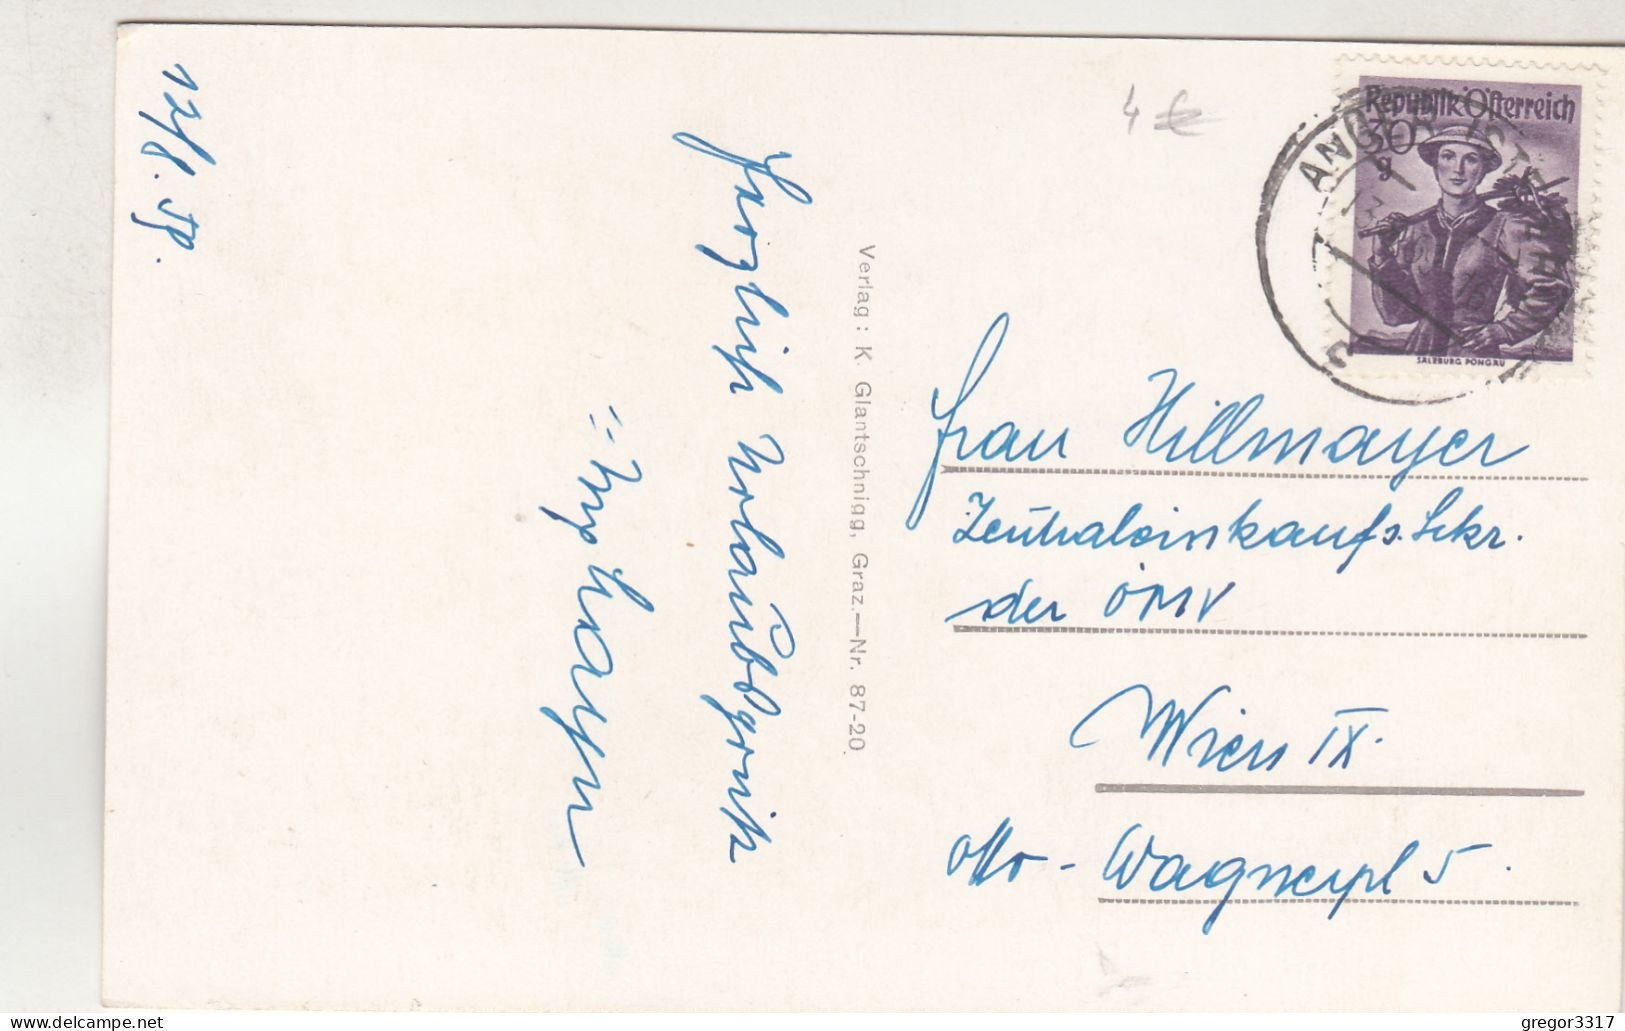 12/8. 59.
Herzlich Urlaubsgrüße
Verlag: K. Glantschnigg, Graz.—Nr. 87-20.
4 €
Republik Österreich
30
g
SALZBURG PONGAU
ANGER
Frau Hillmayer
Zentraleinkaufs. Sekr.
der ÖMV
Wien IX.
Otto-Wagnerpl 5.
gregor3317